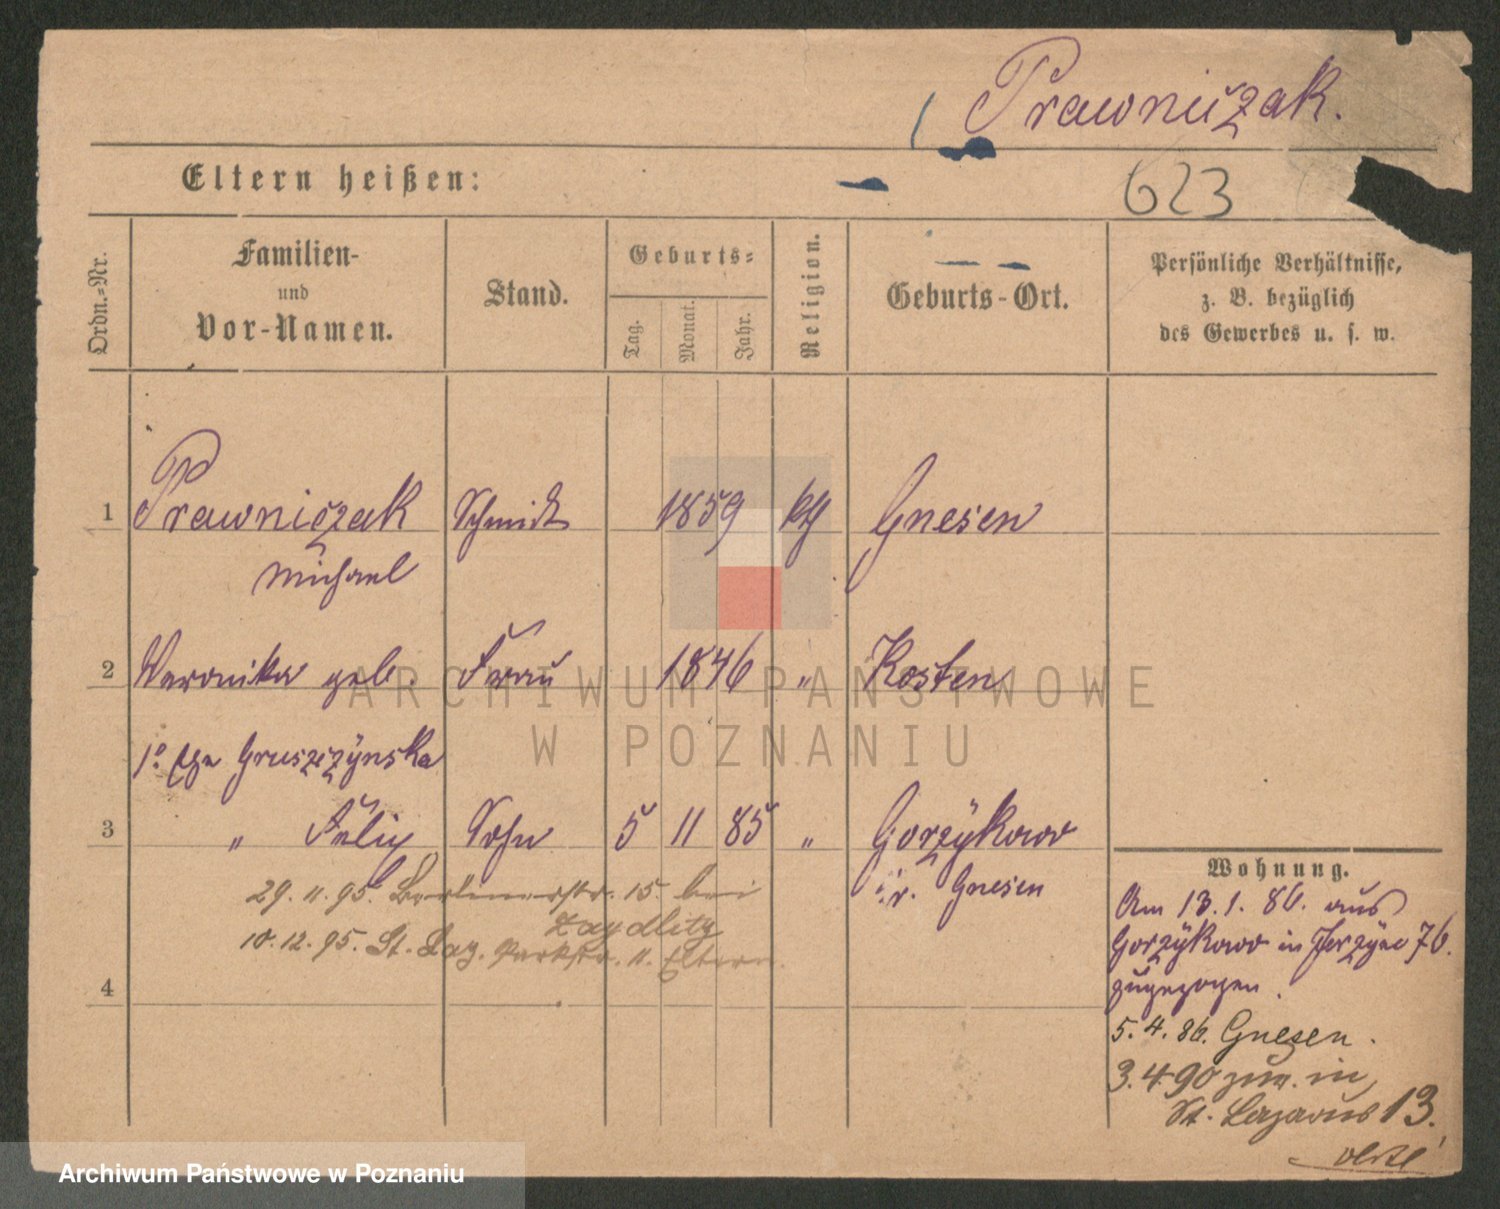 Prawniczak.
623
Eltern heißen:
Ordn.-Nr.
Familien-
und
Vor-Namen.
Stand.
Geburts-
Tag.
Monat.
Jahr.
Religion.
Geburts-Ort.
Persönliche Verhältnisse,
z. B. bezüglich
des Gewerbes u. s. w.
1 Prawniczak Schmidt 1859 kth Gnesen
Michael
2 Veronika geb. Frau 1846 „ Kosten
1. Ehe Gruszczynska
3 „ Felix Sohn 5 11 85 „ Gorzykowo
Kr. Gnesen
29. 11. 95. Berlinerstr. 15. bei
Zaydlitz
10. 12. 95. St. Laz. Parkstr. 11. Eltern.
4
Wohnung.
Am 13. 1. 86. aus
Gorzykowo in Jerzyce 76.
zugezogen.
5. 4. 86. Gnesen.
3. 4. 90 zur. in
St. Lazarus 13.
ARCHIWUM PAŃSTWOWE
W POZNANIU
Archiwum Państwowe w Poznaniu